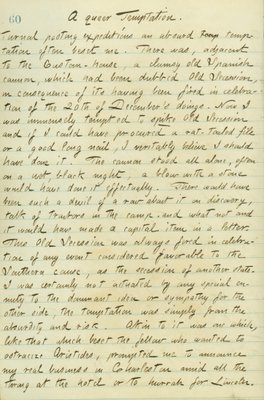 60
A queer Temptation.
turnal posting expeditions an absurd temp-
tation often beset me. There was, adjacent
to the Custom-house, a clumsy old Spanish
cannon, which had been dubbed Old Secession,
in consequence of its having been fired in celebra-
tion of the 20th of December's doings. Now I
was immensely tempted to spike Old Secession
and if I could have procured a rat-tailed file
or a good long nail, I veritably believe I should
have done it. The cannon stood all alone, often
on a wet, black night, a blow with a stone
would have done it effectually. There would have
been such a devil of a row about it on discovery,
talk of traitors in the camp and what not and
it would have made a capital item in a letter.
This Old Secession was always fired in celebra-
tion of any event considered favorable to the
Southern cause, as the secession of another state.
I was certainly not actuated by any special en-
mity to the dominant idea or sympathy for the
other side, the temptation was simply from the
absurdity and risk. Akin to it was one which,
like that which beset the fellow who wanted to
ostracize Aristides, prompted me to announce
my real business in Charleston amid all the
throng at the hotel or to hurrah for Lincoln.